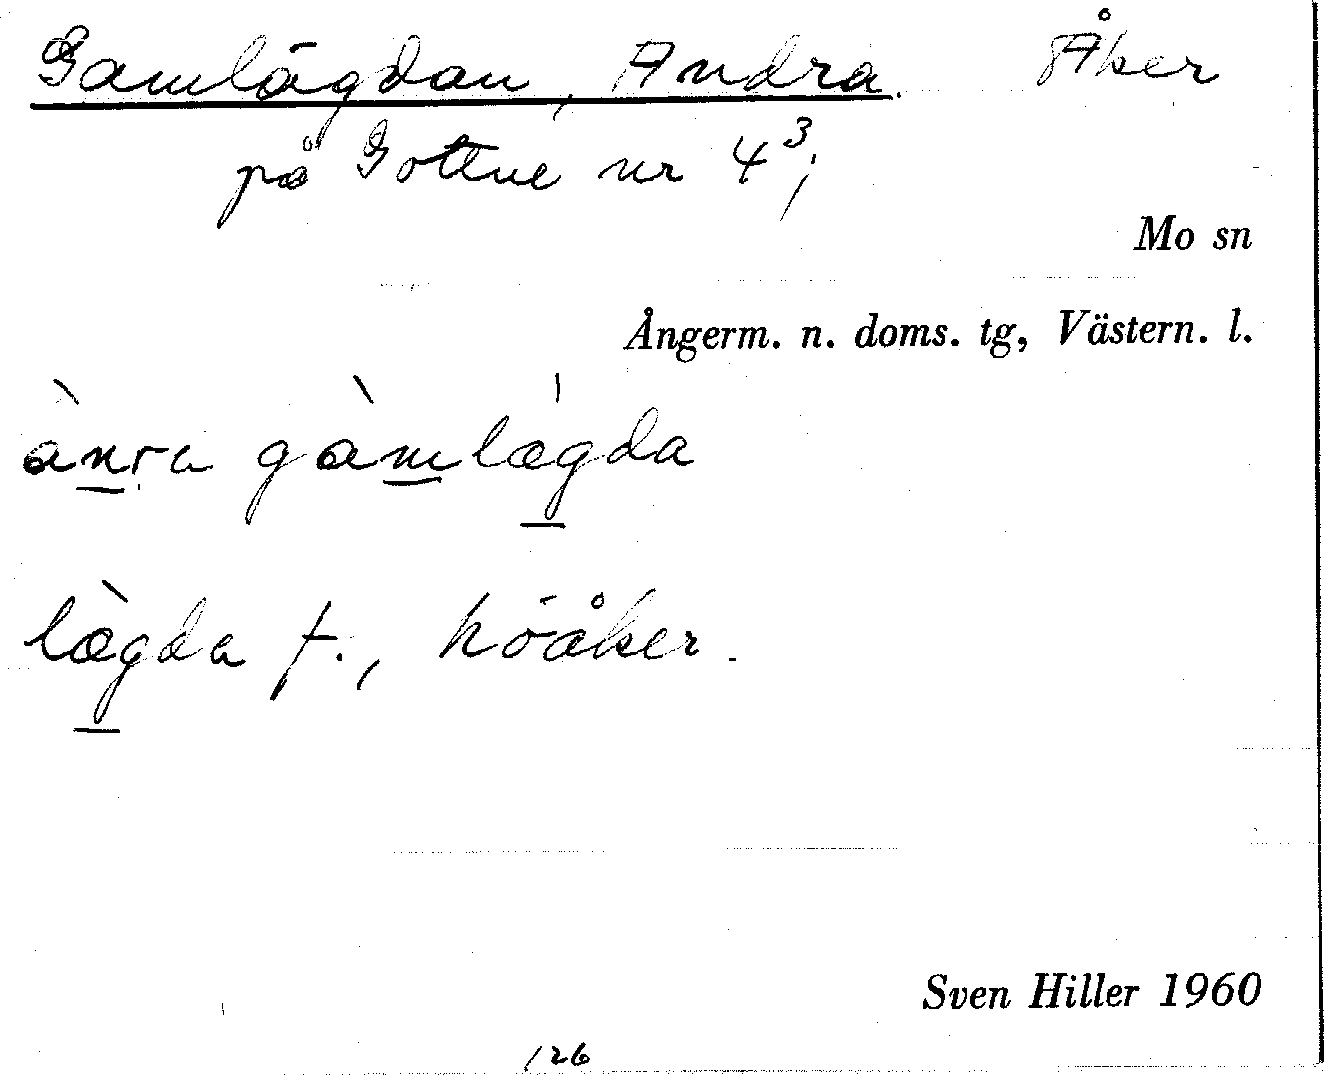 Gamlägdan, Andra. Åker
på Gottne nr 4³;
Mo sn
Ångerm. n. doms. tg, Västern. l.
ànra gàmlægda
lægda f., höåker.
Sven Hiller 1960
126